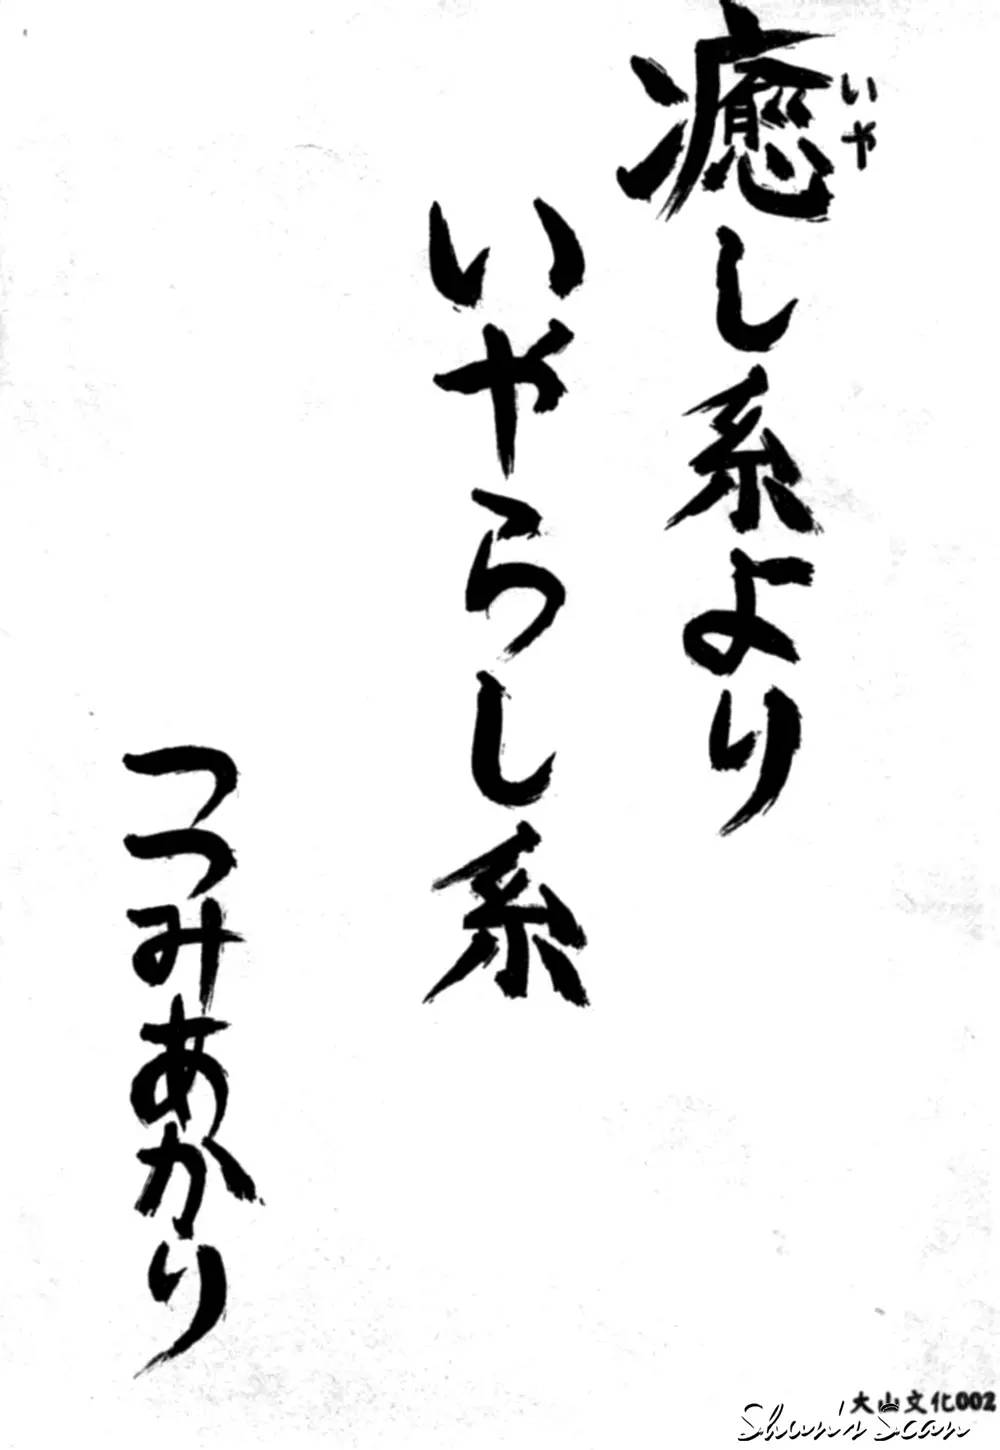 癒し系より
いや
いやらし系
つつみあかり
大山文化002
Shun's Scan